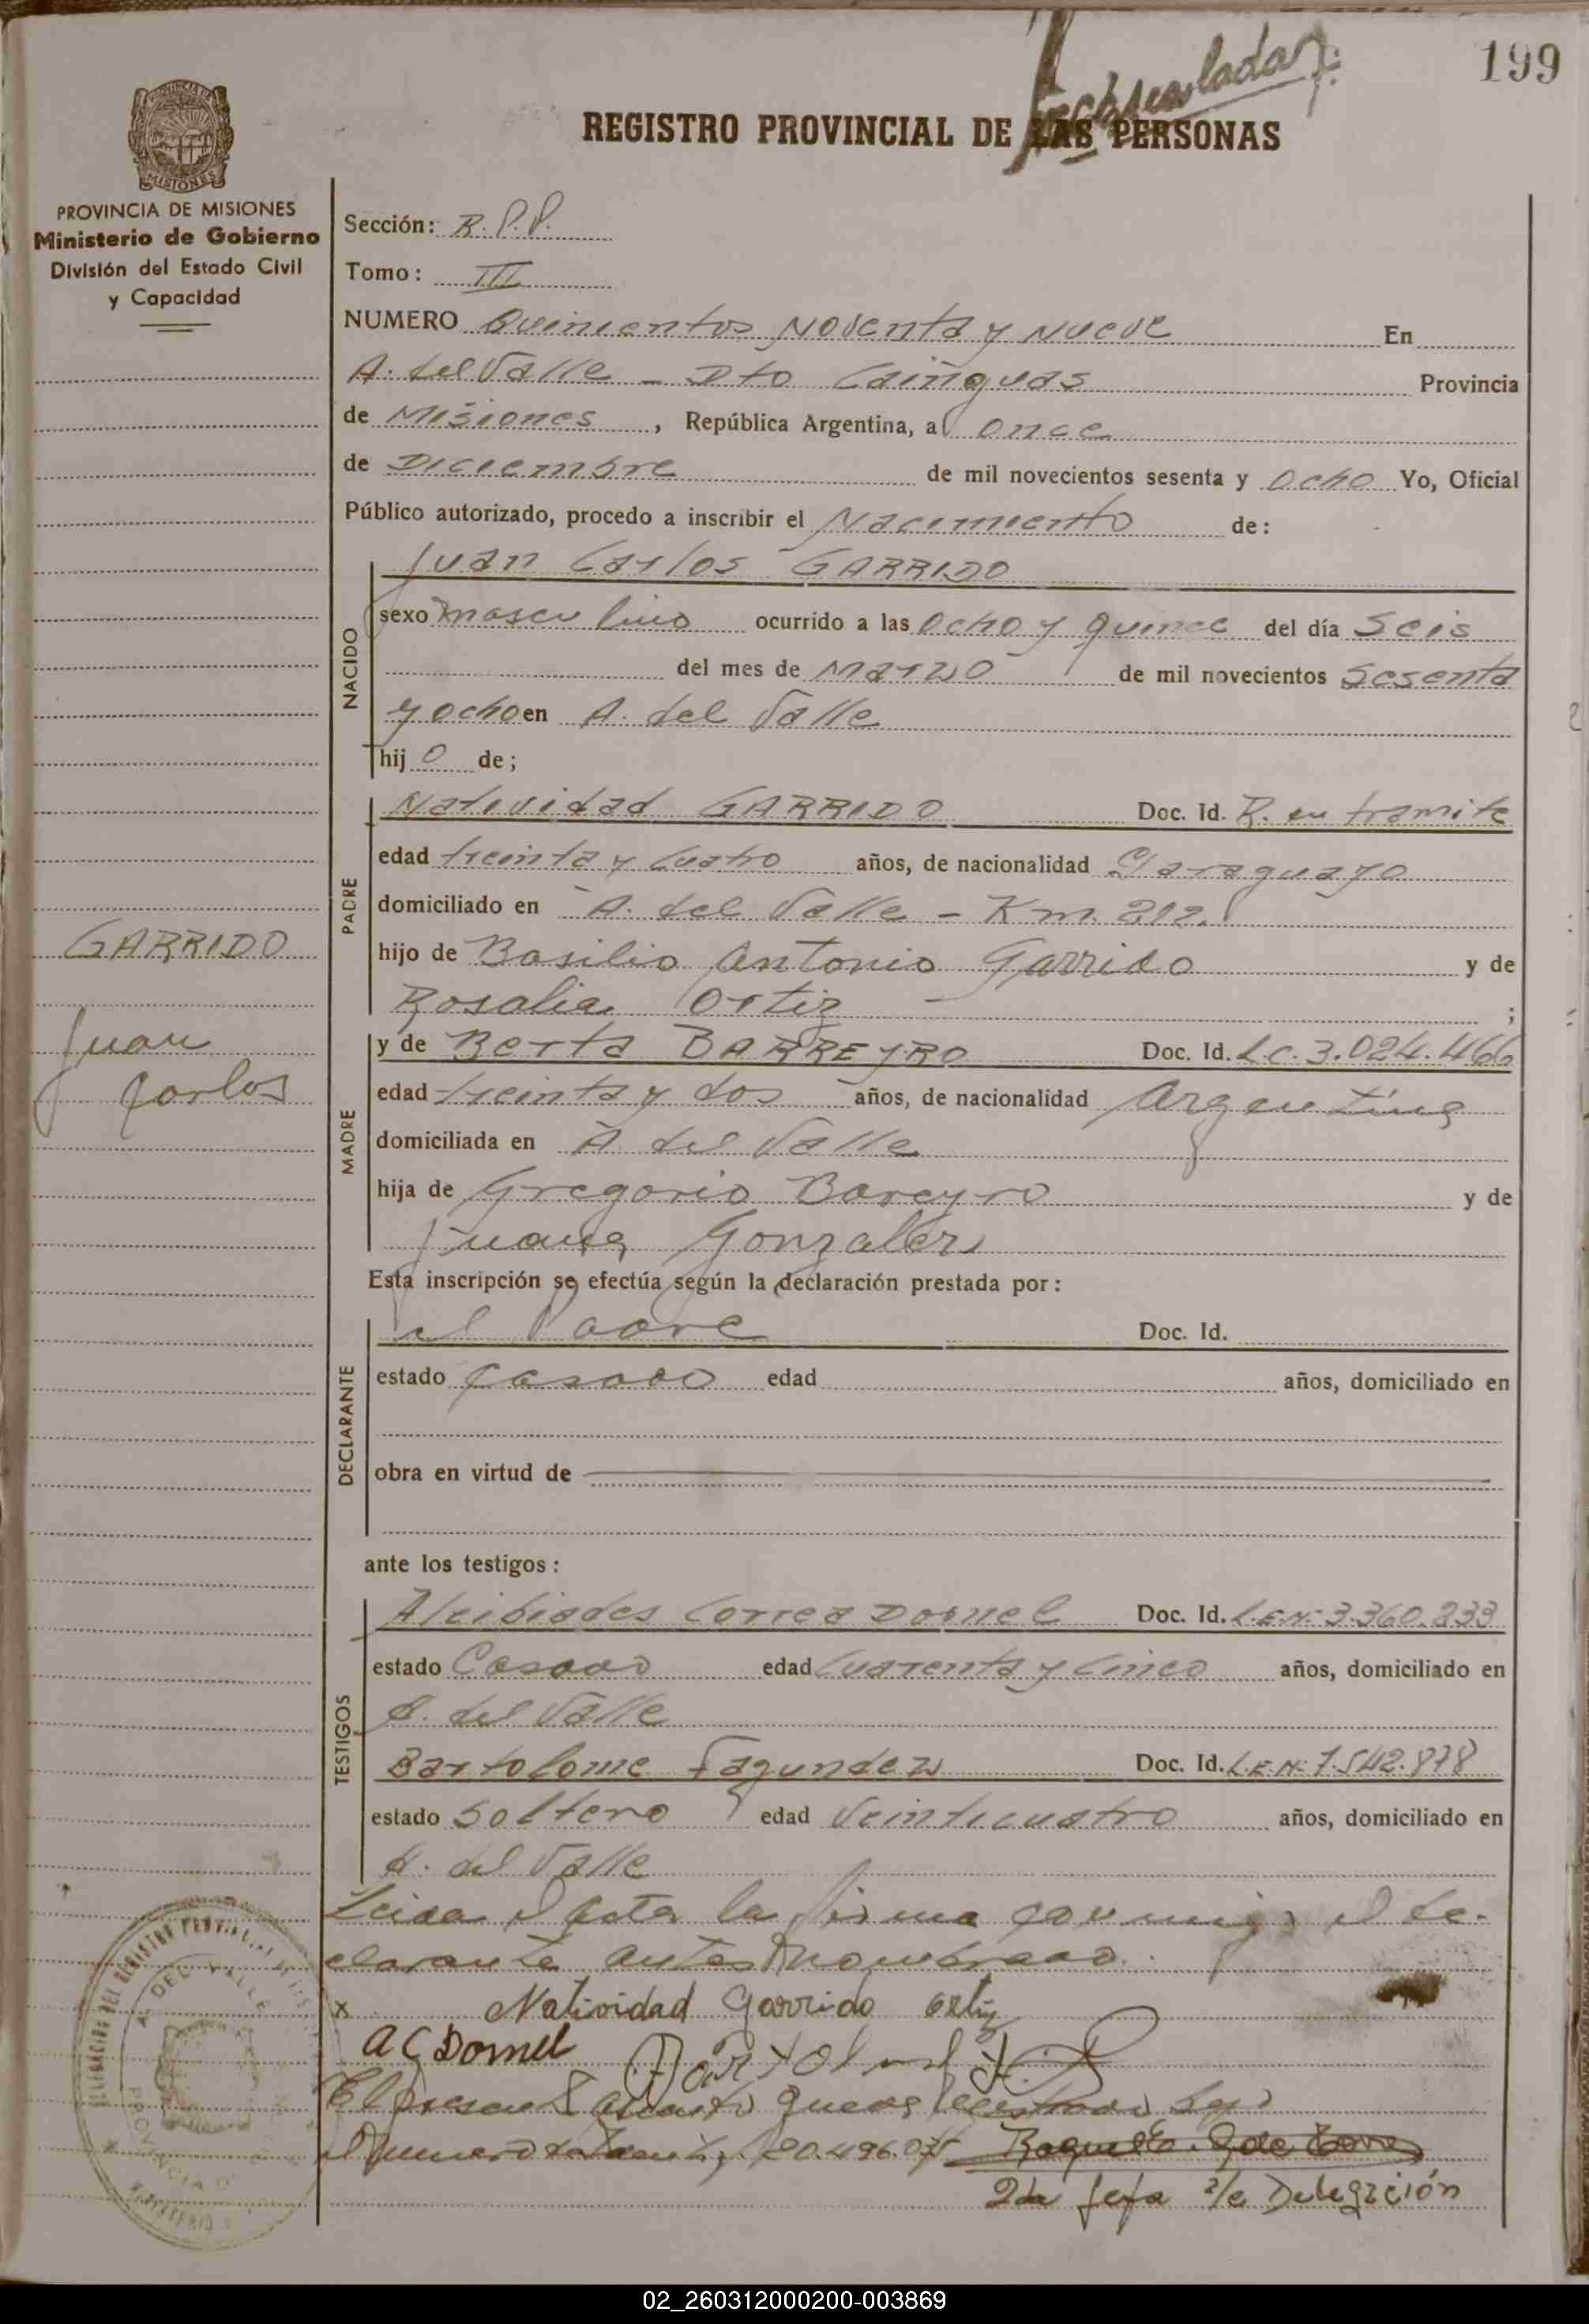 199
REGISTRO PROVINCIAL DE LAS PERSONAS
PROVINCIA DE MISIONES
MISIONES
PROVINCIA DE MISIONES
Ministerio de Gobierno
División del Estado Civil
y Capacidad
Sección: R.P.P.
Tomo: III
NUMERO Quinientos Noventa y Nueve En
A. del Valle - Dto Cainguas Provincia
de Misiones, República Argentina, a once
de Diciembre de mil novecientos sesenta y ocho Yo, Oficial
Público autorizado, procedo a inscribir el Nacimiento de:
NACIDO
Juan Carlos GARRIDO
sexo masculino ocurrido a las ocho y quince del día Seis
del mes de Marzo de mil novecientos Sesenta
y ocho en A. del Valle
hijo de;
PADRE
Natividad GARRIDO Doc. Id. R. en tramite
edad treinta y cuatro años, de nacionalidad Paraguayo
domiciliado en A. del Valle - Km. 212.
hijo de Basilio Antonio Garrido y de
Rosalia Ortiz ;
GARRIDO
Juan
Carlos
MADRE
y de Berta BARREYRO Doc. Id. L.C. 3.024.466
edad treinta y dos años, de nacionalidad Argentina
domiciliada en A. del Valle
hija de Gregorio Bareyro y de
Juana Gonzalez
Esta inscripción se efectúa según la declaración prestada por:
DECLARANTE
el Padre Doc. Id.
estado Casado edad años, domiciliado en
obra en virtud de
ante los testigos:
TESTIGOS
Alcibiades Correa Dornel Doc. Id. L.E.N: 3.360.233
estado Casado edad Cuarenta y Cinco años, domiciliado en
A. del Valle
Bartolome Fagundez Doc. Id. L.E.N: 7.542.878
estado Soltero edad Veinticuatro años, domiciliado en
A. del Valle
Leida el Acta la firma conmigo el de-
clarante antes nombrado.
x Natividad Garrido Ortiz
A C Dornel
El presente queda bajo
el numero 20.496.075
2da Jefa a/c Delegación
A. DEL VALLE
02_260312000200-003869